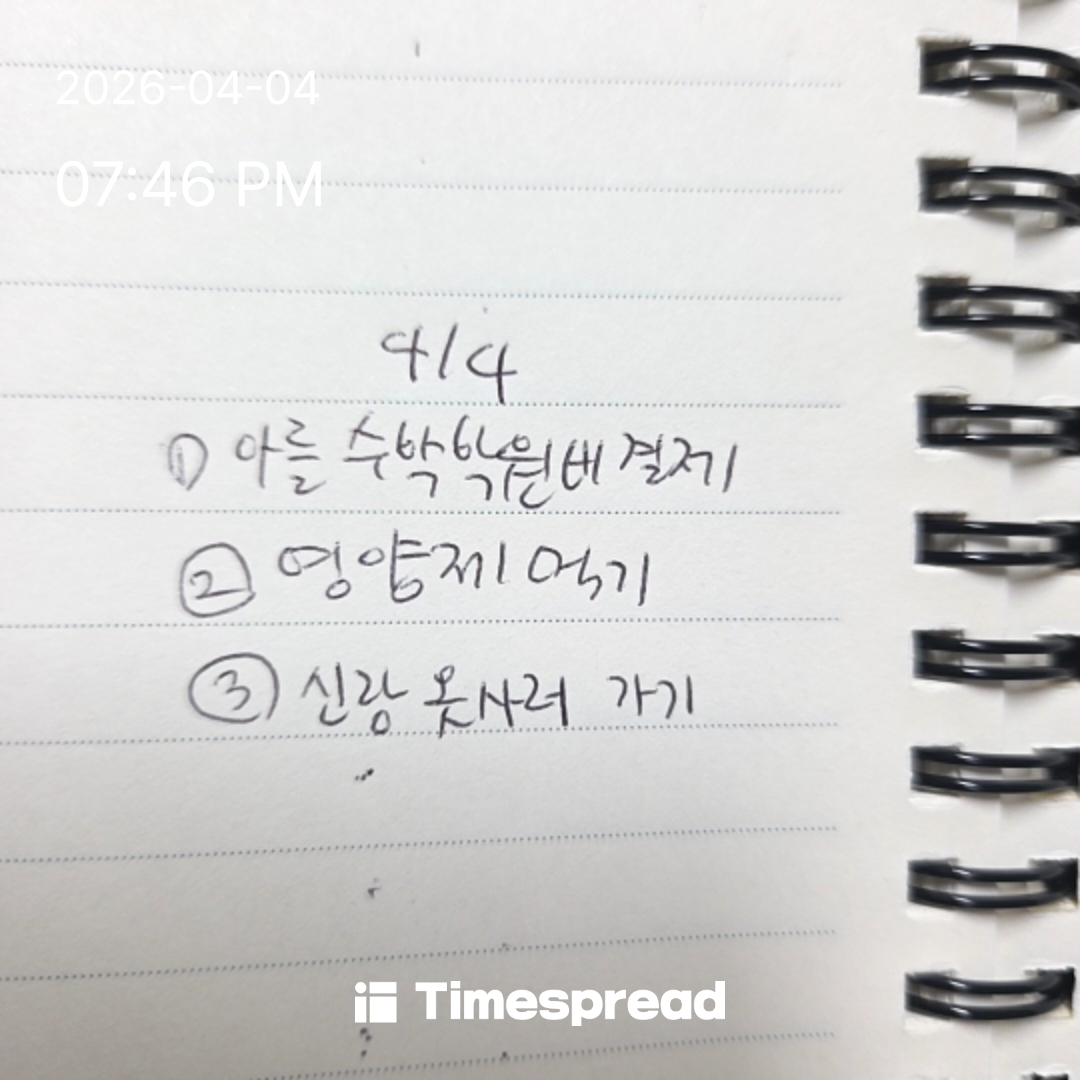 2026-04-04
07:46 PM
4/4
① 아들 수학학원비 결제
② 영양제 먹기
③ 신랑 옷사러 가기
Timespread